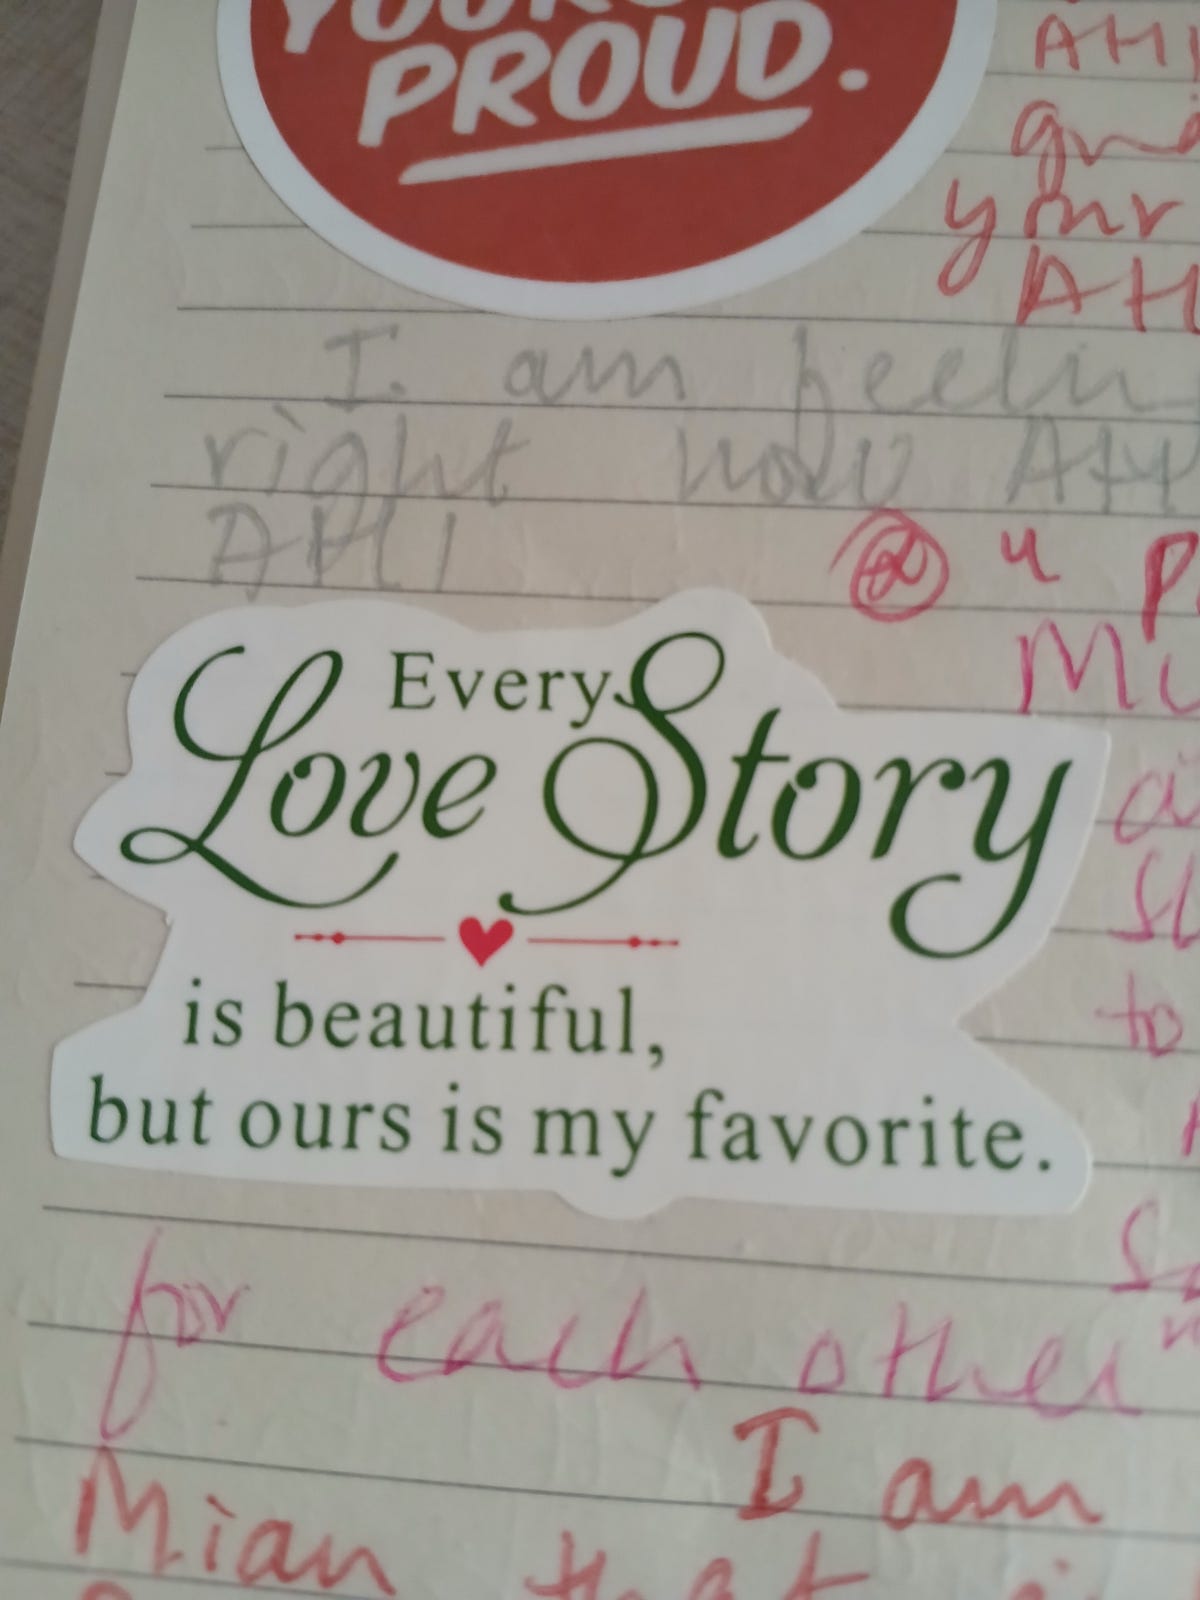 PROUD.
AHI
your
AH
I am
right now AH
AHI
u P
Every
Love Story
is beautiful,
but ours is my favorite.
to
for each other
I am
Mian that